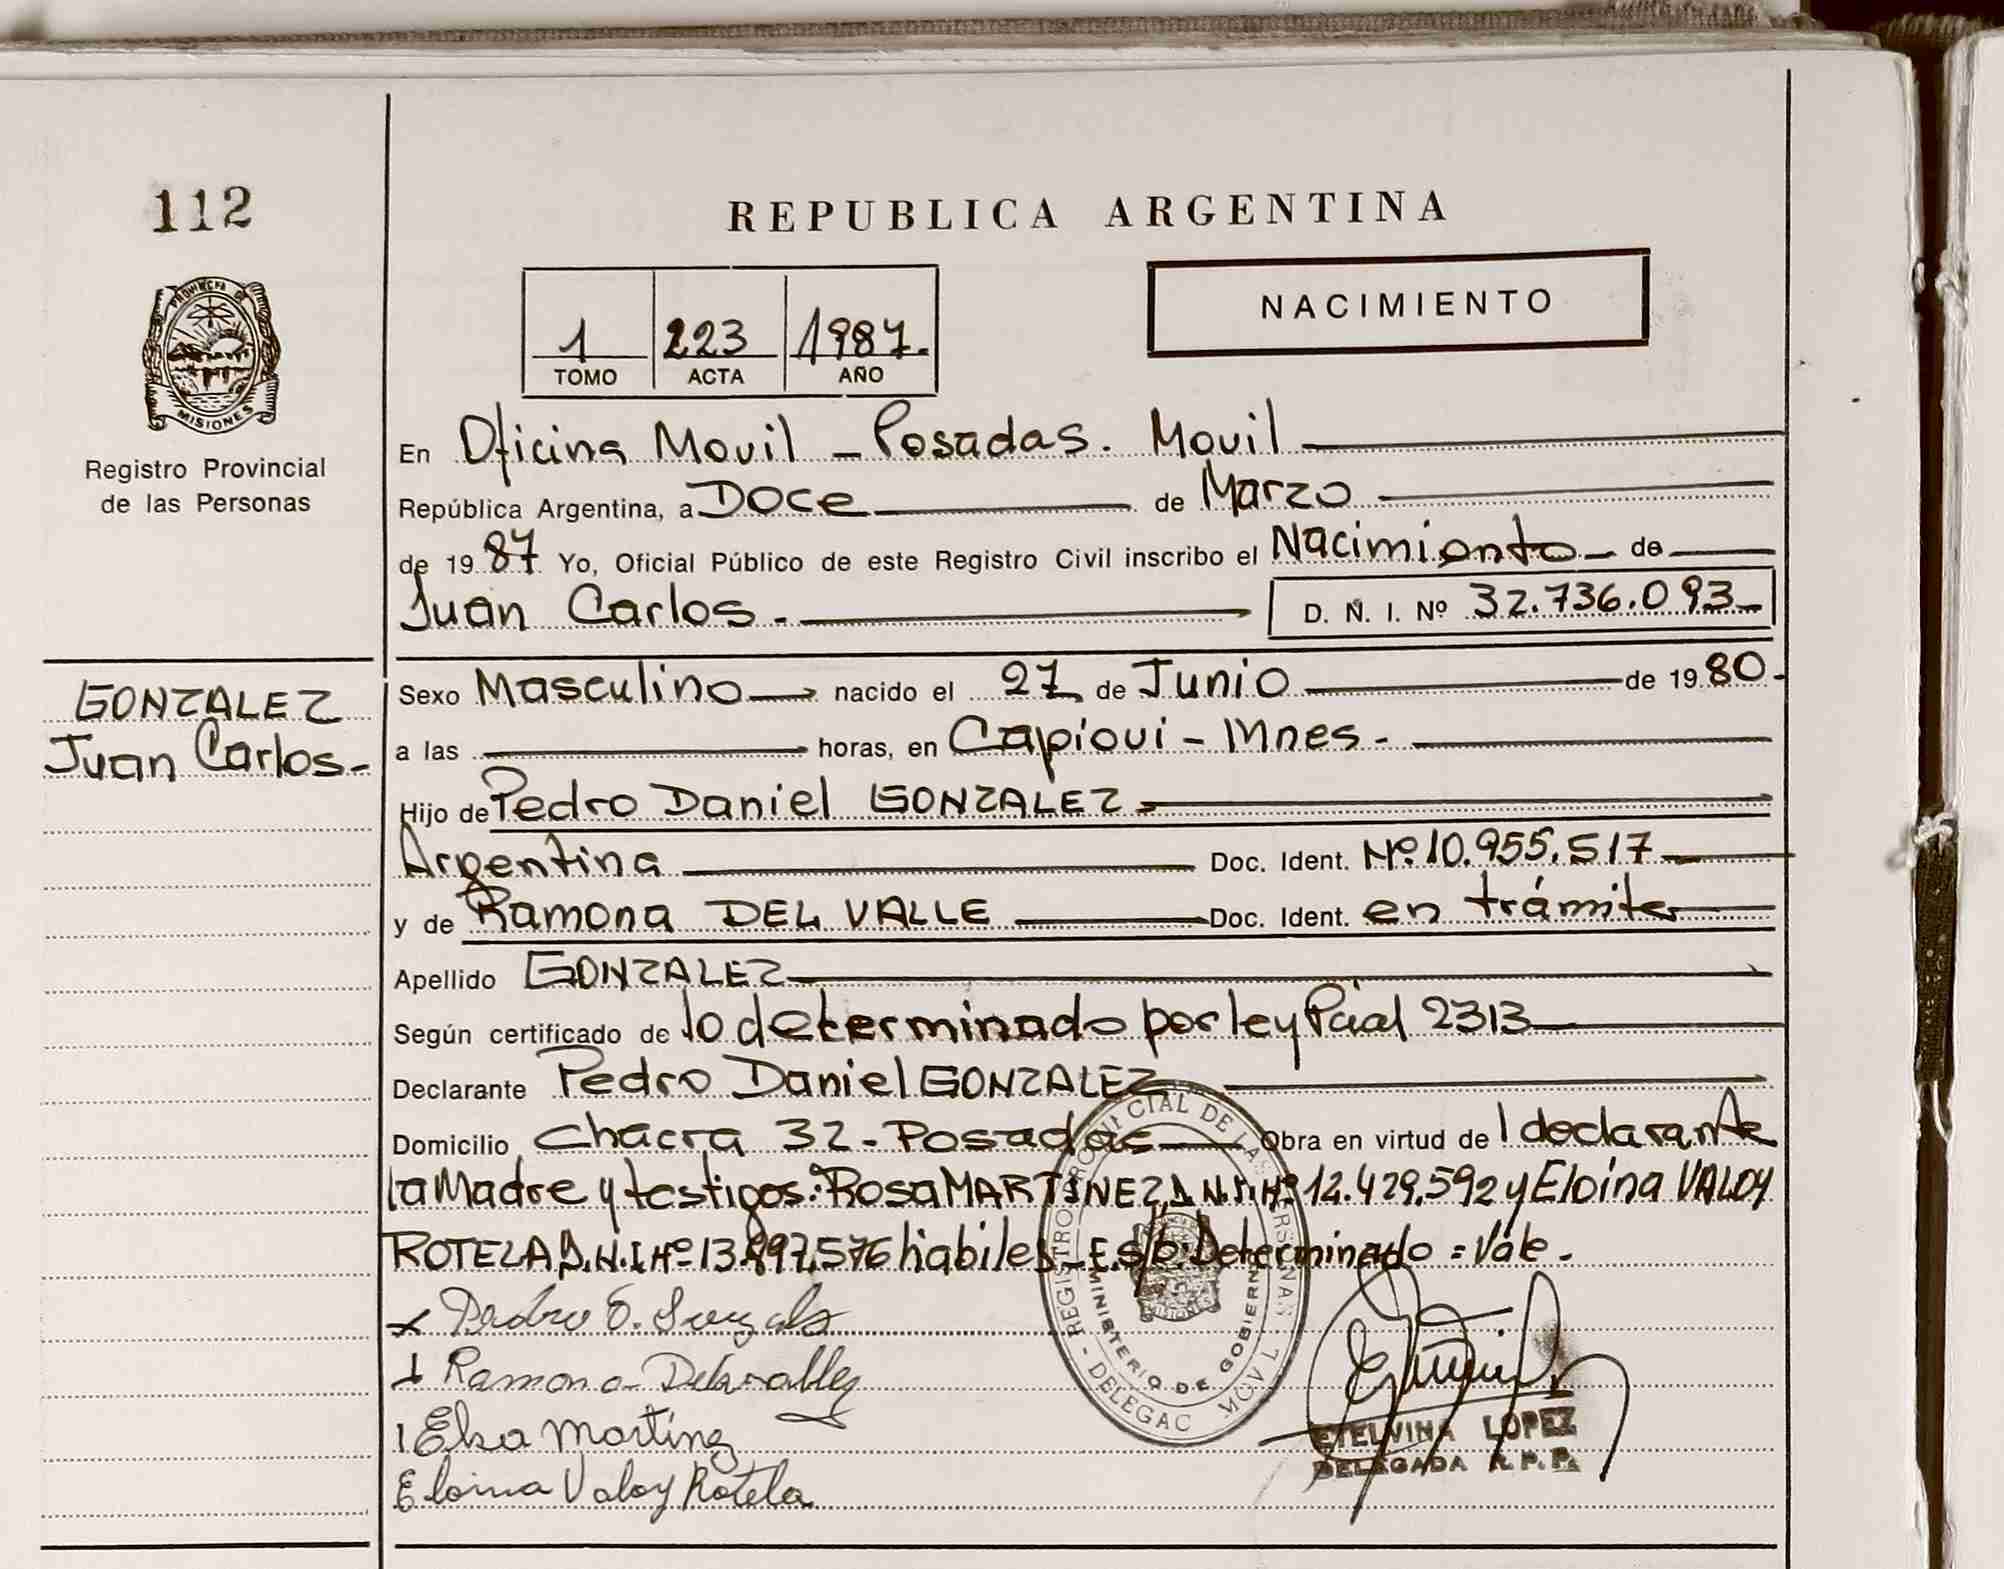 112
REPUBLICA ARGENTINA
PROVINCIA DE
MISIONES
Registro Provincial
de las Personas
1 223 1987.
TOMO ACTA AÑO
NACIMIENTO
En Oficina Movil - Posadas. Movil
República Argentina, a Doce de Marzo
de 19 87 Yo, Oficial Público de este Registro Civil inscribo el Nacimiento de
Juan Carlos.- D. N. I. Nº 32.736.093
GONZALEZ
Juan Carlos-
Sexo Masculino nacido el 27 de Junio de 19 80.
a las horas, en Capioui - Mnes.-
Hijo de Pedro Daniel GONZALEZ
Argentina Doc. Ident. Nº 10.955.517
y de Ramona DEL VALLE Doc. Ident. en trámite
Apellido GONZALEZ
Según certificado de lo determinado por ley Pcial 2313
Declarante Pedro Daniel GONZALEZ
Domicilio Chacra 32 - Posadas Obra en virtud de l declarante
la Madre y testigos: Rosa MARTINEZ, D.N.I.Nº 12.429.592 y Eloina VALOY
ROTELA D.N.I Nº 13.897.576 habiles - E.S/b: Determinado = Vale.
REGISTRO PROVINCIAL DE LAS PERSONAS
MINISTERIO DE GOBIERN
- DELEGAC MOVL
Ramona
Elsa Martinez
Eloina Valoy Rotela
ETELVINA LOPEZ
DELEGADA R. P. P.